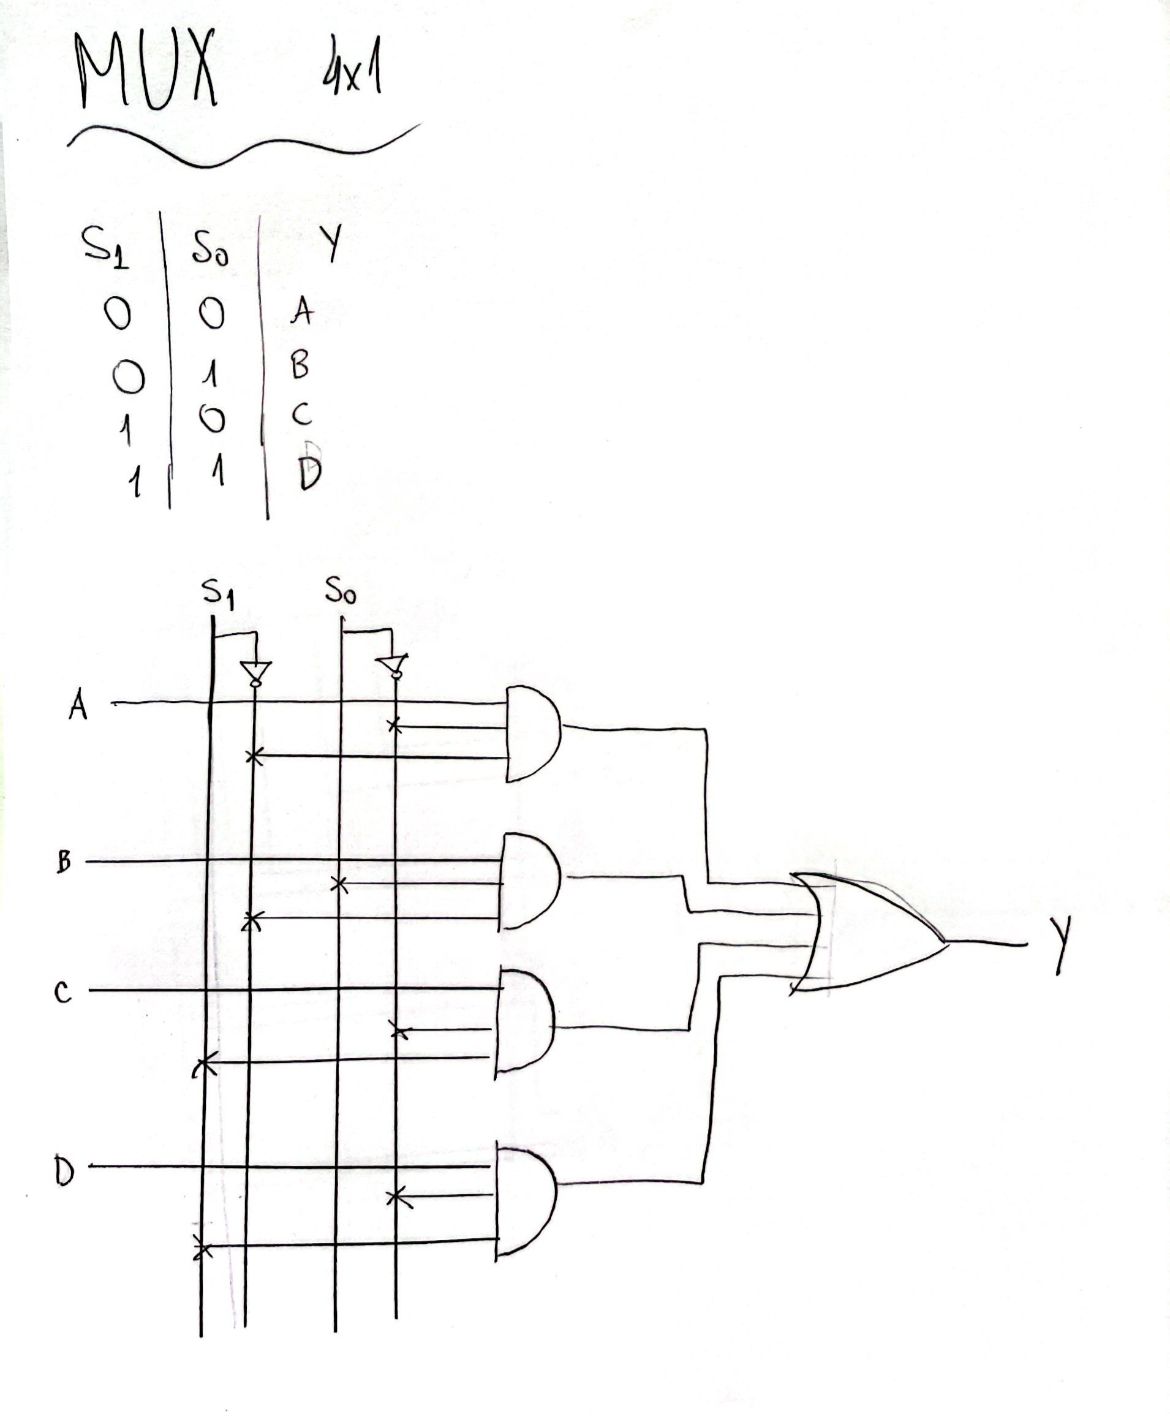 MUX 4x1
S1 S0 Y
0 0 A
0 1 B
1 0 C
1 1 D
S1 S0
A
B
Y
C
D